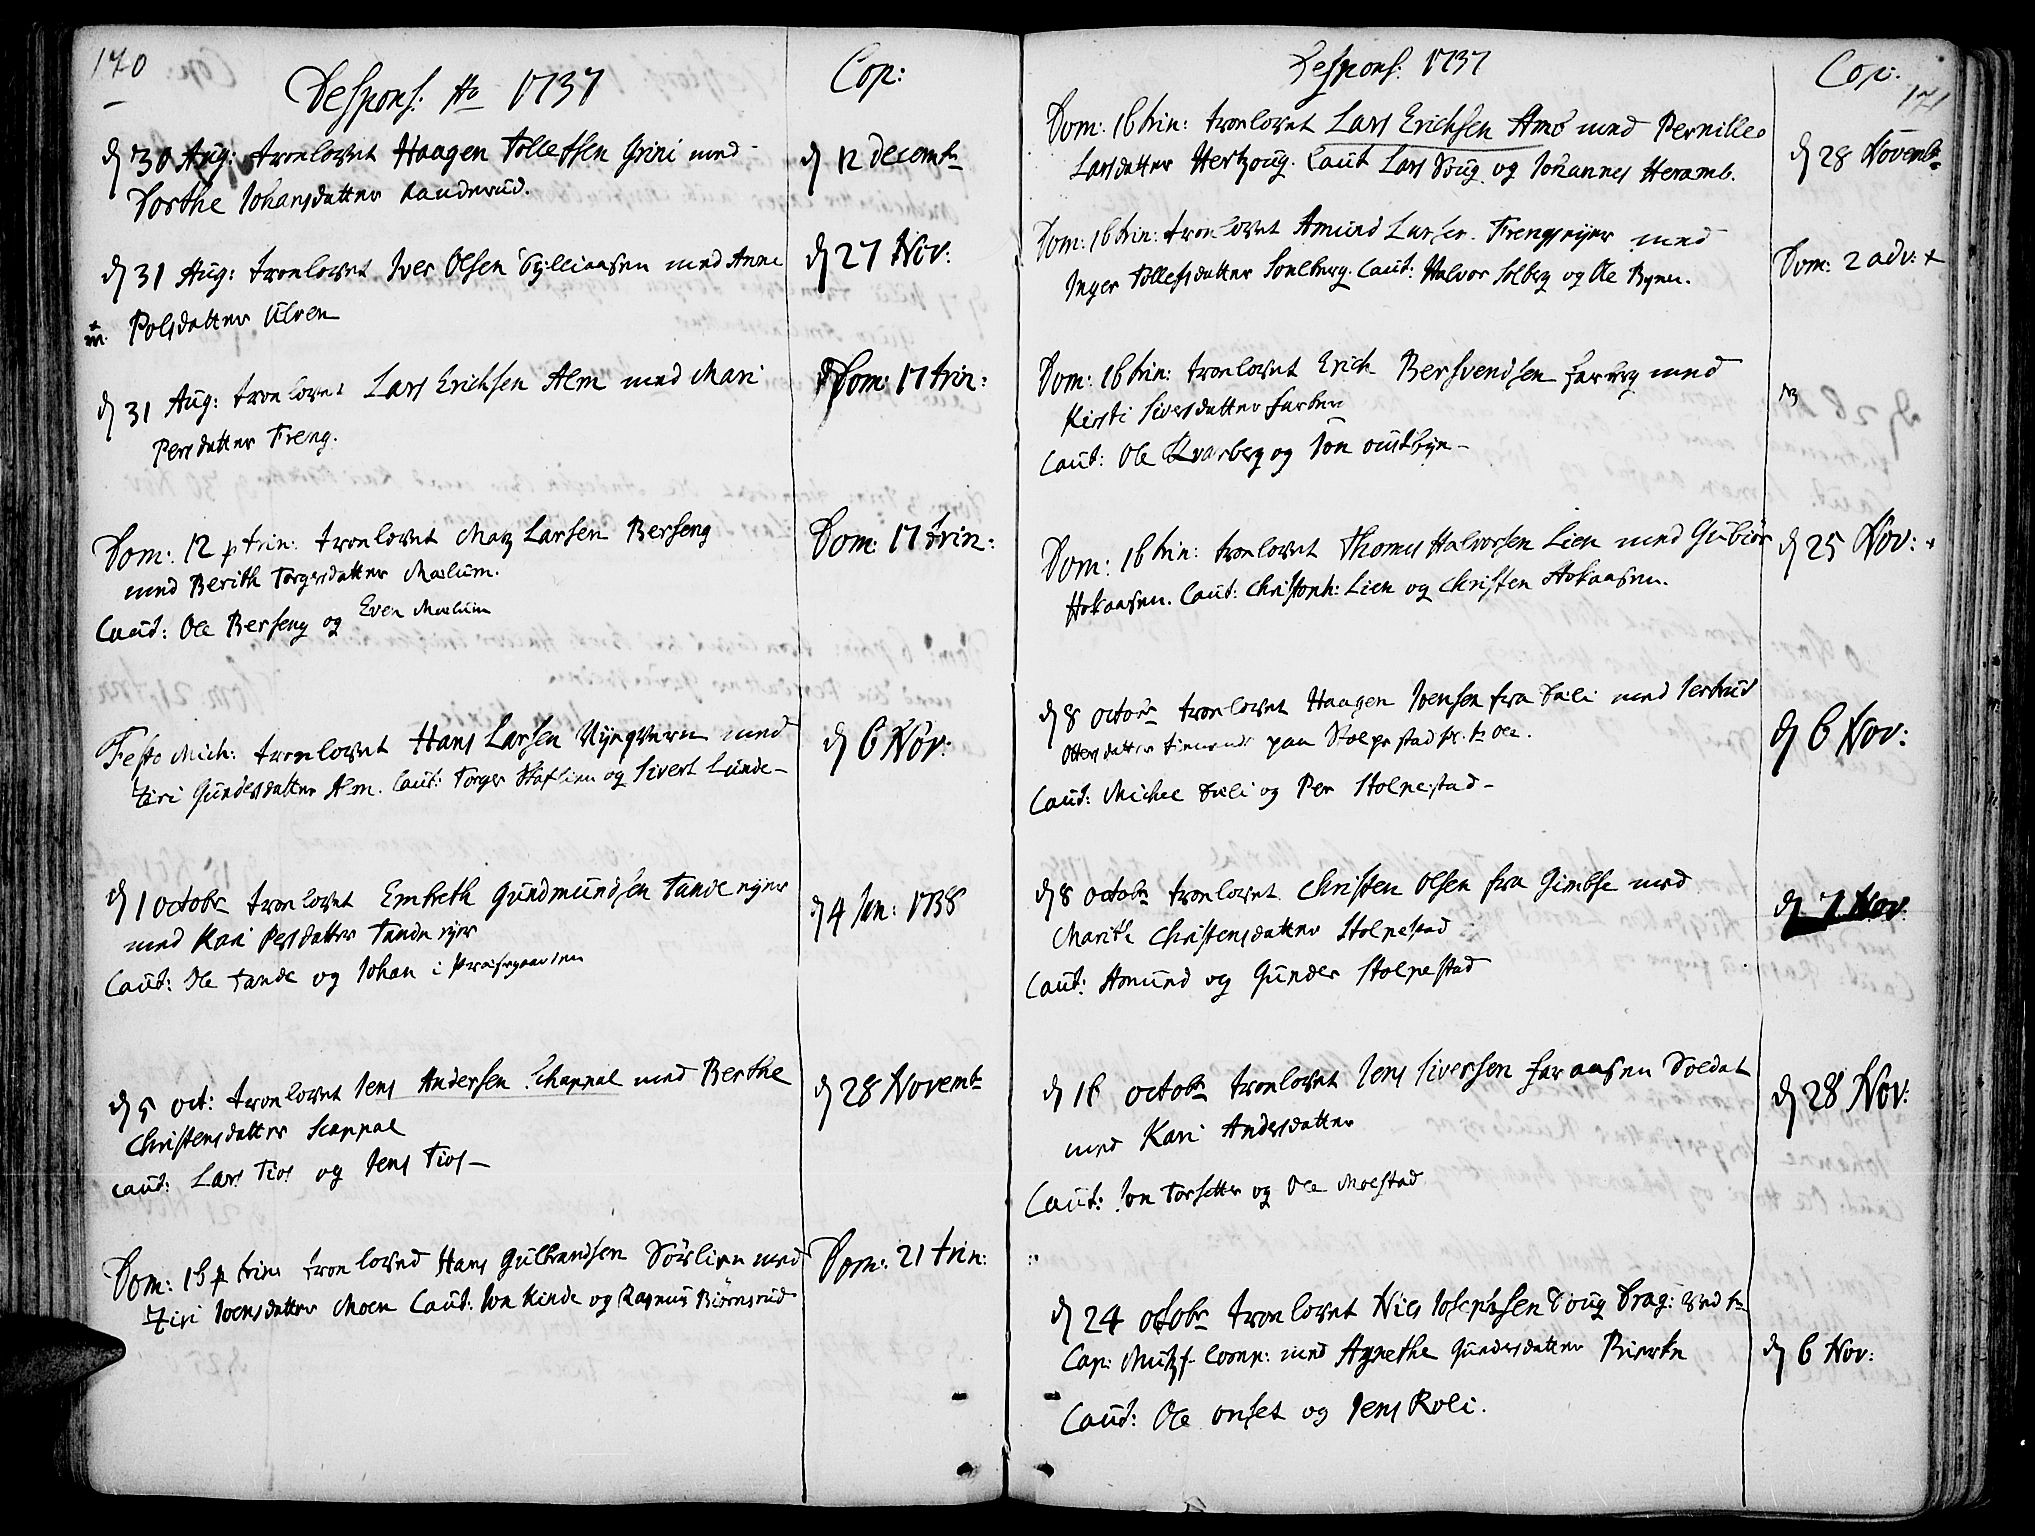 170
Despons: Ao 1737
Cop:
d 30 Aug: troelovet Haagen Tollefsen Grini med
Dorthe Johansdatter Randerud.
d 12 decembr
d 31 Aug: troelovet Iver Olsen Sylliaasen med Anne
Polsdatter Ulven
d 27 Nov:
d 31 Aug: troelovet Lars Erichsen Alm med Mari
Persdatter Freng.
Dom: 17 trin:
Dom: 12 p trin: troelovet Matz Larsen Berseng
med Berith Torgersdatter Mælum.
Caut: Ole Berseng og Even Mælum
Dom: 17 trin:
Festo Mich: troelovet Hans Larsen Nyeqvern med
Siri Gundersdatter Alm. Caut: Torger Staflien og Sivert Lunde
d 6 Nov:
d 1 octobr troelovet Embreth Gudmundsen Tande eyer
med Kari Persdatter Tande eyer
Caut: Ole Tande og Johan i Præstgaarden
d 4 Jan: 1738
d 5 oct: troelovet Jens Andersen Schappal med Berthe
Christensdatter Scappal
caut: Lars Tios og Jens Tios
d 28 Novembr
Dom: 15 p trin: troeloved Hans Gulbrandsen Sörlien med
Siri Joensdatter Moen Caut: Jon Kinde og Rasmus Biörnsrud
Dom: 21 trin:
171
Despons: 1737
Cop:
Dom: 16 trin: troelovet Lars Erichsen Amb med Pernille
Larsdatter Hertzoug. Caut Lars Soug og Johannes Heramb.
d 28 Novembr
Dom: 16 trin: troelovet Amund Larsen Frengseyer med
Inger Tollefsdatter Soelberg. Caut: Halvor Solberg og Ole Byen.
Dom: 2 adv:
Dom: 16 trin: troelovet Erich Bersvendsen med
Kirsti Siversdatter
Caut: Ole Kvarberg og Jon oustbye
Dom: 16 trin: troelovet Thomes Halvorsen Lien med Gubiör
Hokaasen. Caut: Christoph: Lien og Christen Hokaasen.
d 25 Nov:
d 8 octobr troelovet Haagen Joensen fra Sæli med Jertrud
Ottersdatter tienende paa Stolpestad
Caut: Michel Sæli og Per Stolpestad
d 6 Nov:
d 8 octobr troelovet Christen Olsen fra Gimbse med
Marith Christensdatter Stolpestad
Caut: Amund og Gunder Stolpestad
d 7 Nov:
d 16 octobr troelovet Jens Siversen Faraasen Soldat
med Kari Andersdatter
Caut: Jon Torsetter og Ole Moestad
d 28 Nov:
d 24 octobr troelovet Niels Josephsen Soug Drag: ved
Cap: Comp: med Agnethe Gundersdatter Bierke
Caut: Ole onset og Jens Roli.
d 6 Nov: